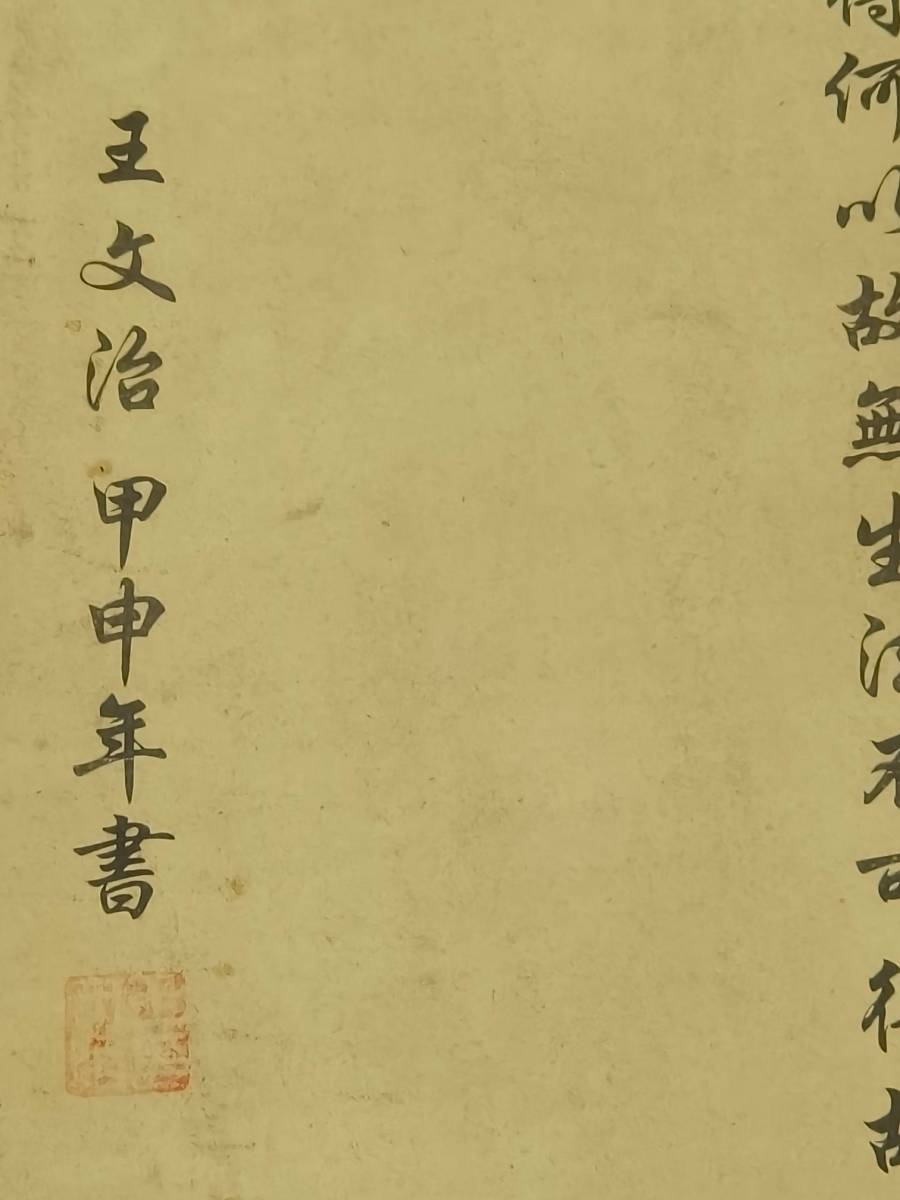 得何以故無生法不可得故
王文治 甲申年書